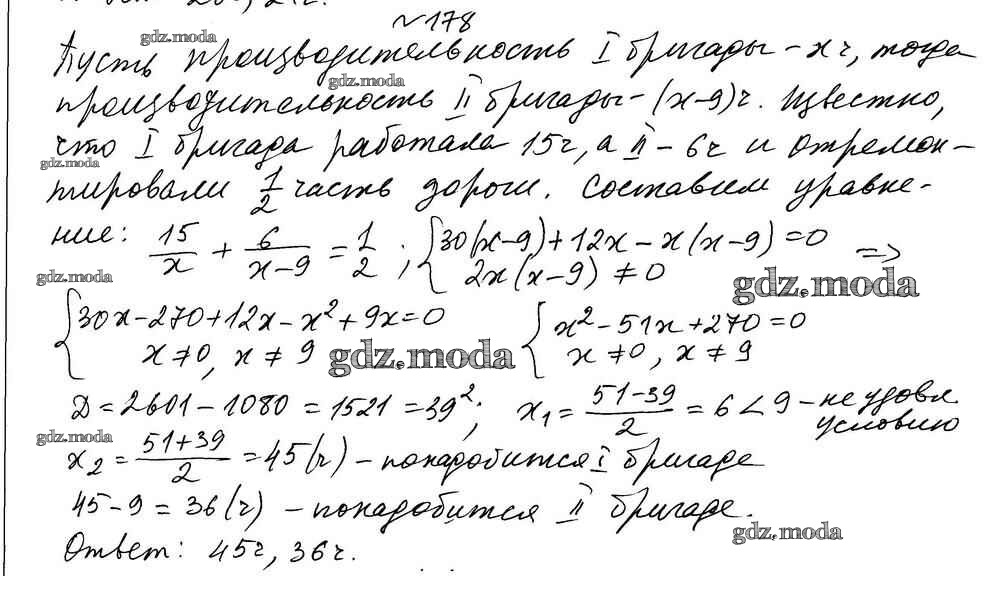 №178
Пусть производительность I бригады - x ч, тогда
производительность II бригады - (x-9) ч. Известно,
что I бригада работала 15 ч, а II - 6 ч и отремон-
тировали 1/2 часть дороги. Составим уравне-
ние: 15/x + 6/(x-9) = 1/2 ; { 30(x-9)+12x-x(x-9)=0 =>
2x(x-9) ≠ 0
{ 30x-270+12x-x²+9x=0 { x²-51x+270=0
x≠0, x≠9 x≠0, x≠9
D=2601-1080=1521=39²; x₁ = (51-39)/2 = 6 < 9 - не удовл.
условию
x₂ = (51+39)/2 = 45(ч) - понадобится I бригаде
45-9=36(ч) - понадобится II бригаде.
Ответ: 45ч, 36ч.
gdz.moda
gdz.moda
gdz.moda
gdz.moda
gdz.moda
gdz.moda
gdz.moda
gdz.moda